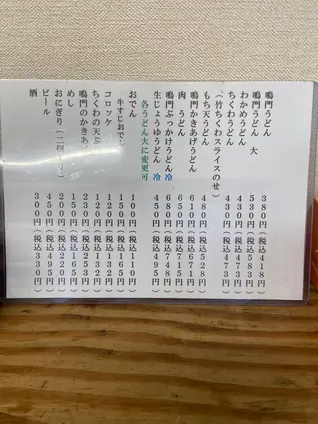 鳴門うどん 380円(税込418円)
鳴門うどん 大 530円(税込583円)
わかめうどん 430円(税込473円)
ちくわうどん 430円(税込473円)
(竹ちくわスライスのせ)
もち天うどん 480円(税込528円)
鳴門かきあげうどん 610円(税込671円)
肉 うどん 650円(税込715円)
鳴門ぶっかけうどん 冷 680円(税込748円)
生じょうゆうどん 冷 450円(税込495円)
各うどん大に変更可
おでん 100円(税込110円)
牛すじおでん 150円(税込165円)
コロッケ 120円(税込132円)
ちくわの天ぷ 120円(税込132円)
鳴門のかきあ 230円(税込253円)
めし 150円(税込165円)
おにぎり(二 200円(税込220円)
ビール 450円(税込495円)
酒 300円(税込330円)